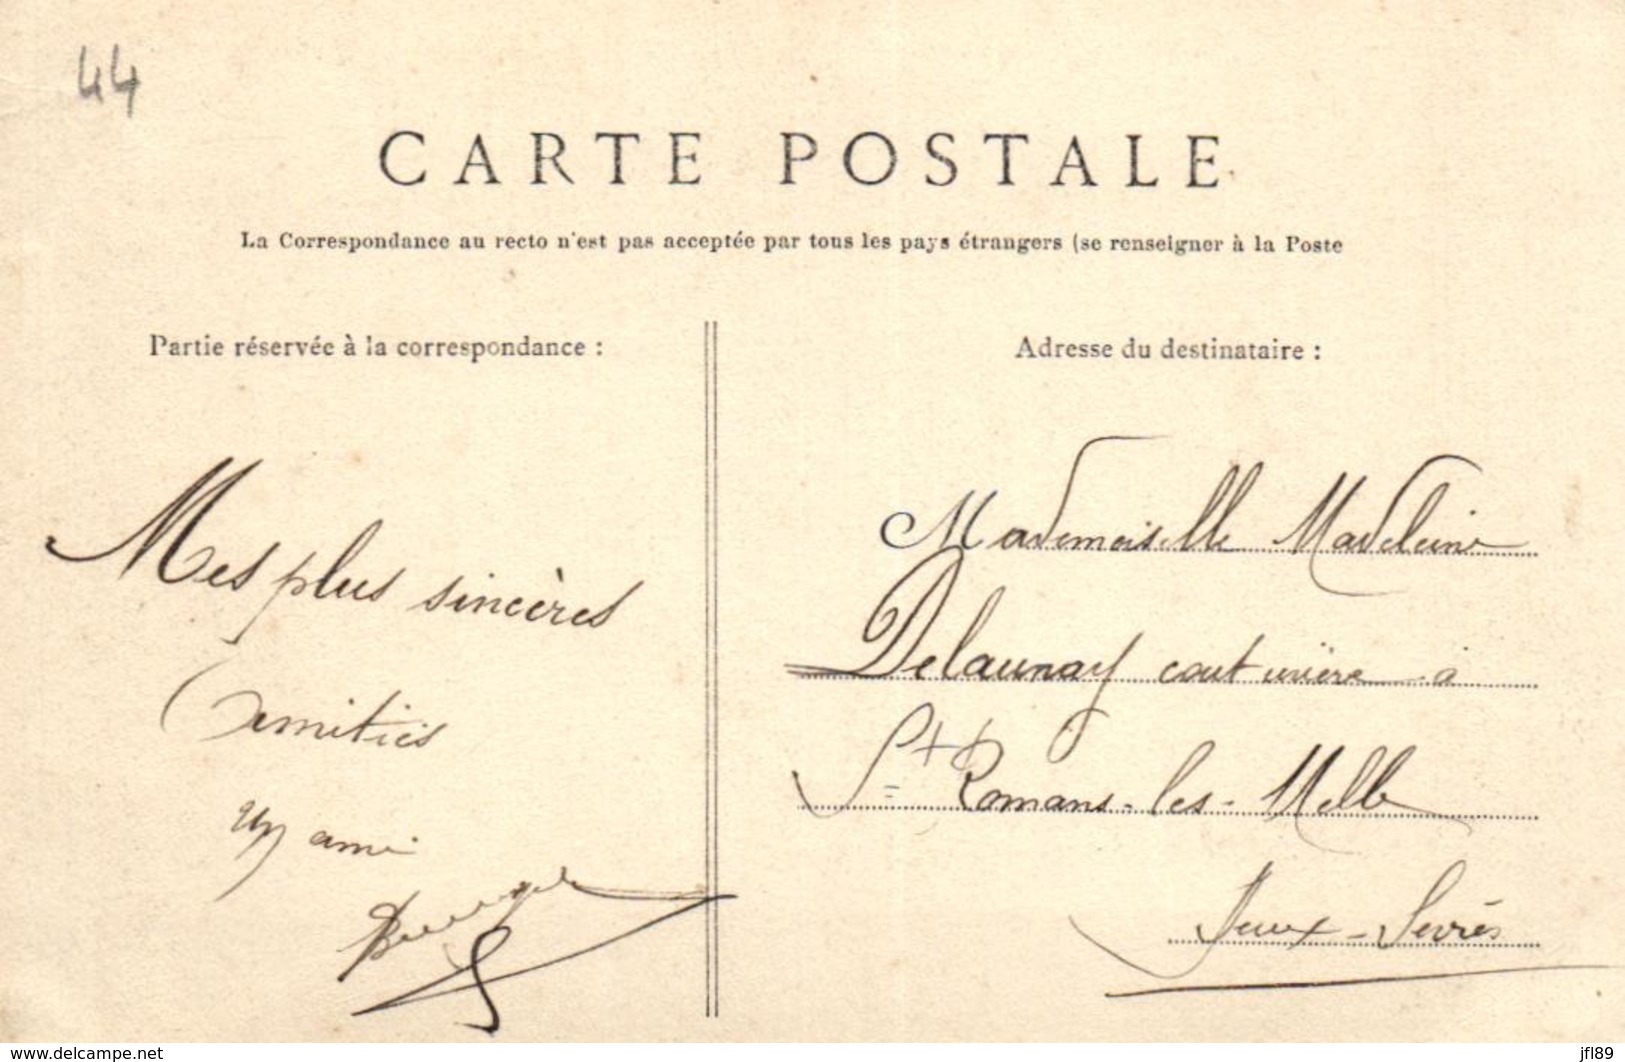 44
CARTE POSTALE
La Correspondance au recto n'est pas acceptée par tous les pays étrangers (se renseigner à la Poste
Partie réservée à la correspondance :
Mes plus sincères
Amitiés
Un ami
Adresse du destinataire :
Mademoiselle Madeleine
Delaunay couturière à
St Romans-les-Melle
Deux-Sèvres
www.delcampe.net
jfl89